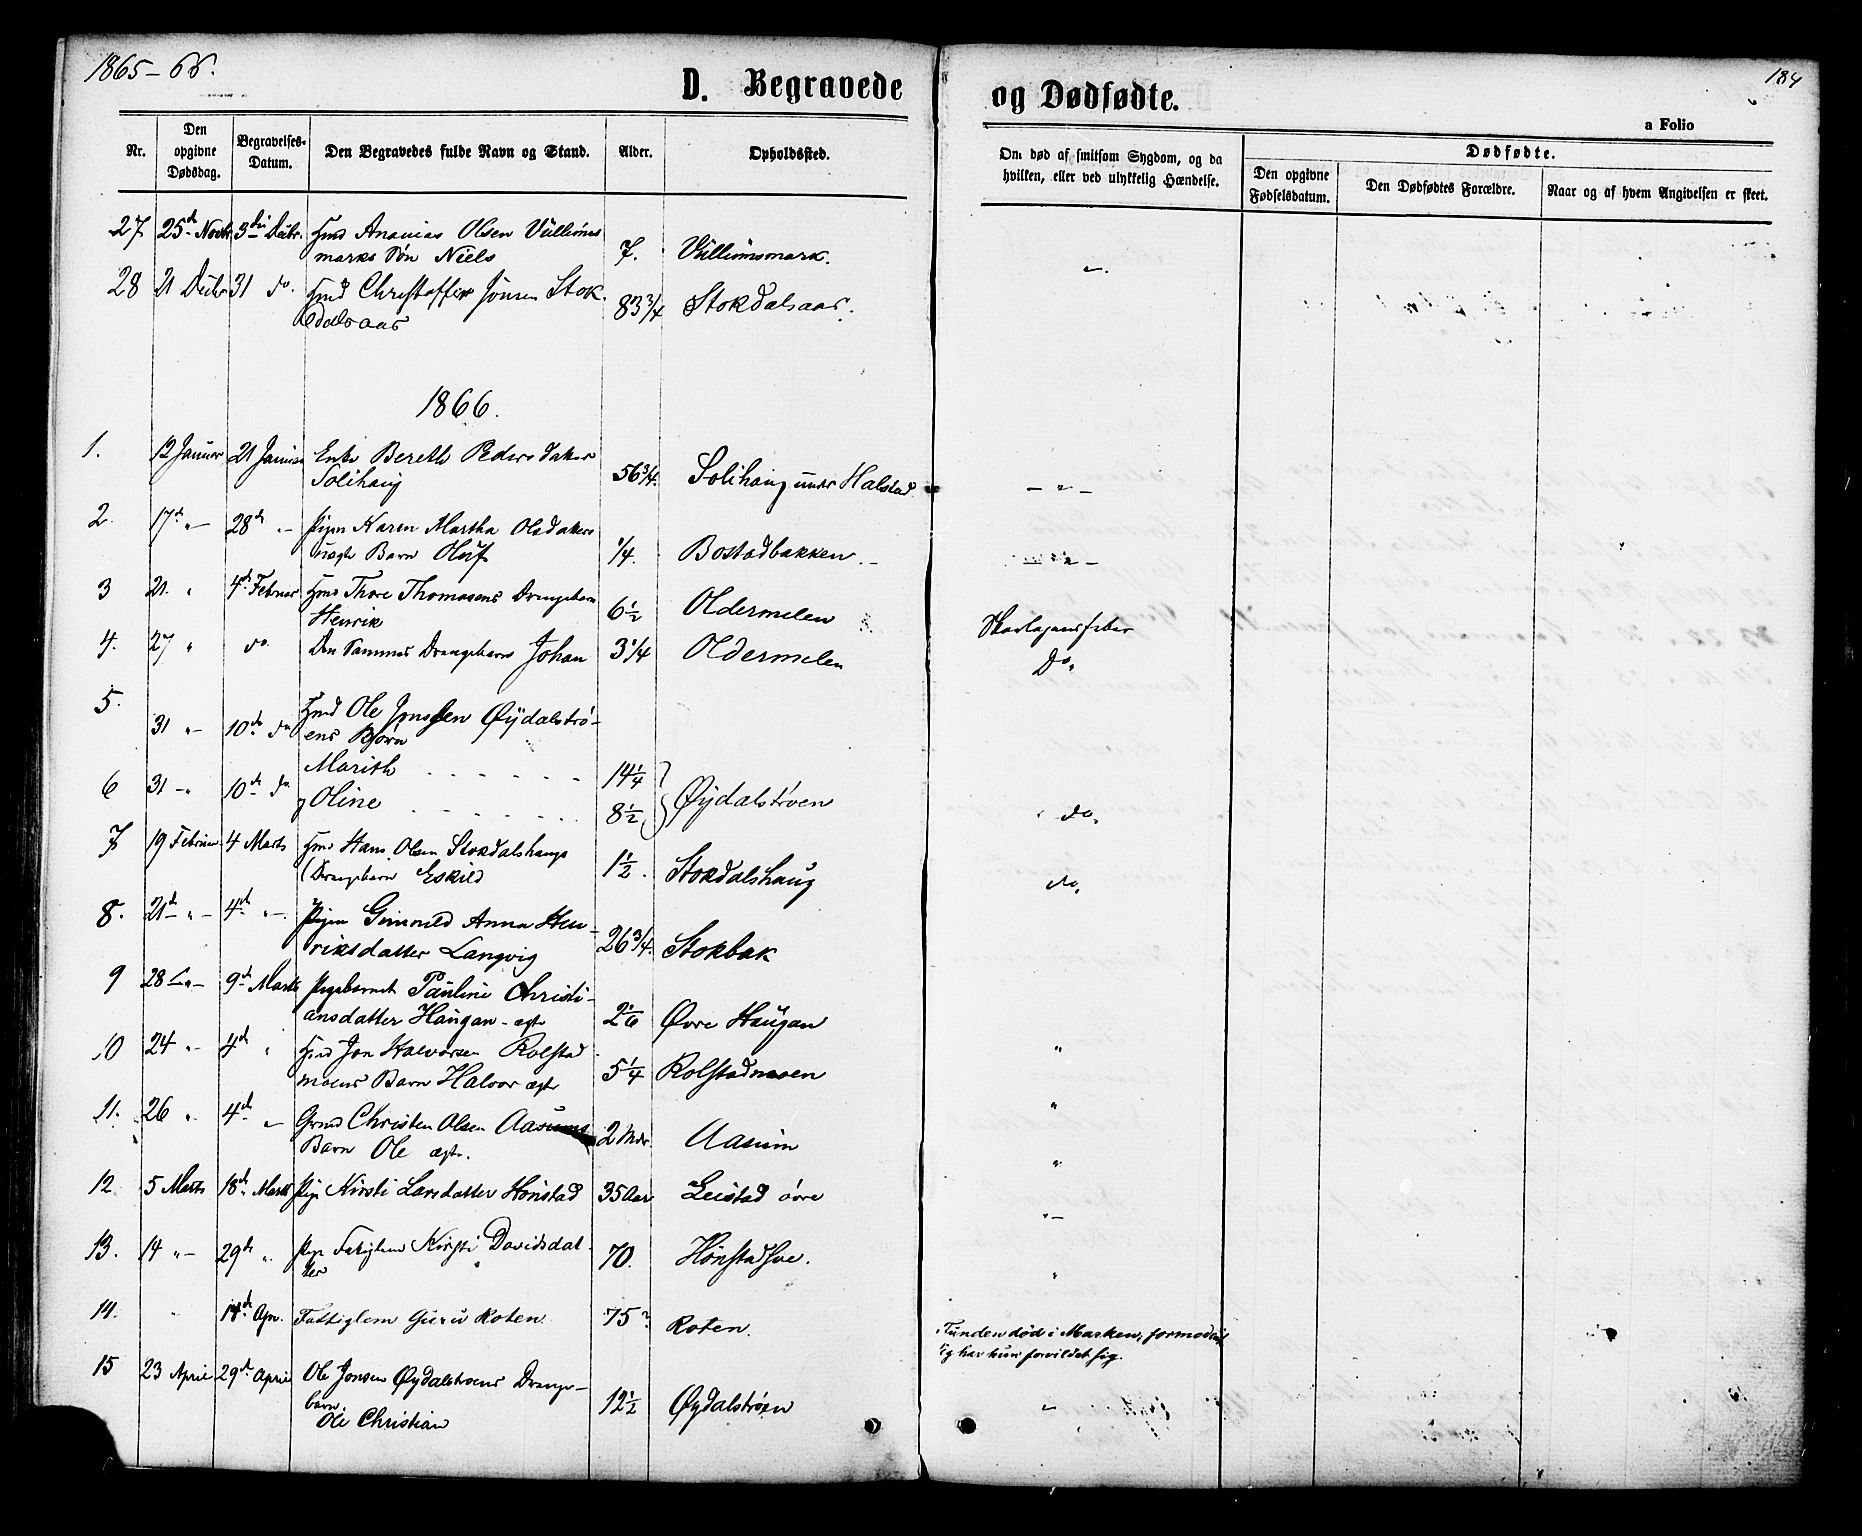 1865-66.
184
D. Begravede og Dødfødte.
a Folio
Nr.
Den opgivne Dødsdag.
Begravelses-Datum.
Den Begravedes fulde Navn og Stand.
Alder.
Opholdssted.
Om død af smitsom Sygdom, og da hvilken, eller ved ulykkelig Hændelse.
Dødfødte.
Den opgivne Fødselsdatum.
Den Dødfødtes Forældre.
Naar og af hvem Angivelsen er skeet.
27 25de Novbr 3die Decbr. Gmd Ananias Olsen
marks Søn Niels 7.
28 21 Decbr 31 do. Gmd Christoffer Jonsen Stok-
dalsaas 83 3/4 Stokdalsaas.
1866.
1. 12 Januar 21 Januar Enke Bereth Peders Datter
Solihaug 56 3/4. Solihaug under Halstad - " -
2. 17de " - 28de " - Pigen Karen Martha Olsdatters
uægte Barn Oluf 1/4. Bostadbakken. -
3 21. " 4de Februar Gmd Thore Thomasens Drengebarn
Henrik 6 1/2 Oldermelen Skarlagensfeber
4. 27 " do. Den Sammes Drengebarn Johan 3 1/4 Oldermelen Do.
5. 31 " - 10de do Gmd Ole Jonssen Øydalstrø-
ens Børn
Marith 14 1/4
6 31 - " 10de do. Oline 8 1/2 Øydalstrøen do.
7 19 Februar 4 Marts Gmd Hans Olsen Stokdalshaugs
Drengebarn Eskild 1 1/2. Stokdalshaug do.
8. 21de " - 4de " -. Pigen Gunild Anna Hen-
riksdatter Langvig 26 3/4. Stokbak
9 28 " - 9de Marts Pigebarnet Pauline Christi-
ansdatter Haugan - ægte 2 1/6 Øvre Haugan "
10 24 " - 4de " Gmd Jon Halvorsen Rolstad
moens Barn Halvor ægte 5 1/4 Rolstadmoen "
11. 26 " 4de " Grmd Christen Olsen Aasums
Barn Ole ægte. 2 Mdr Aasum "
12 5 Marts 18de Marts Pige Kirsti Larsdatter Hønstad 35 Aar Leistad øvre " -
13. 14 " - 29de ". Pige Fatiglem Kirsti Davidsdat-
ter 70. Hønstadhve. "
14. " 14de Apr. Fattiglem Guru Roten 75 Roten. Funden død i Marken, formodent
lig har hun forvildet sig.
15 23 April 29de April Ole Jonsen Øydalstrøens Drenge-
barn
Ole Christian 12 1/2 Øydalstrøen "